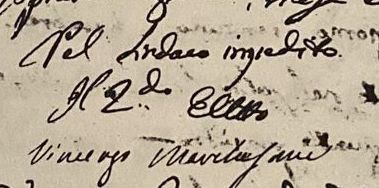 Pel Sindaco impedito
Il 2.do Eletto
Vincenzo